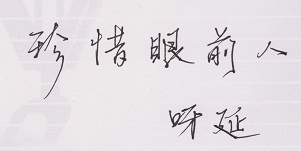 珍惜眼前人
呀延